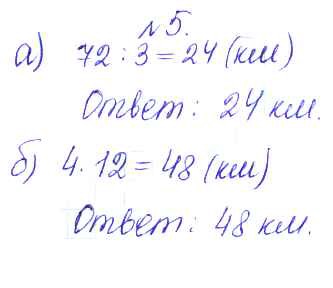 №5.
а) 72 : 3 = 24 (км)
Ответ: 24 км.
б) 4 · 12 = 48 (км)
Ответ: 48 км.